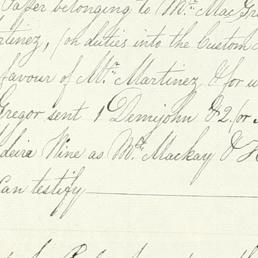 Paper belonging to Mr. MacGre
rtinez, for duties into the Custom
favour of Mr. Martinez, & for w
Gregor sent 1 Demijohn & 2/or
deira Wine as Mr. Mackay &
Can testify